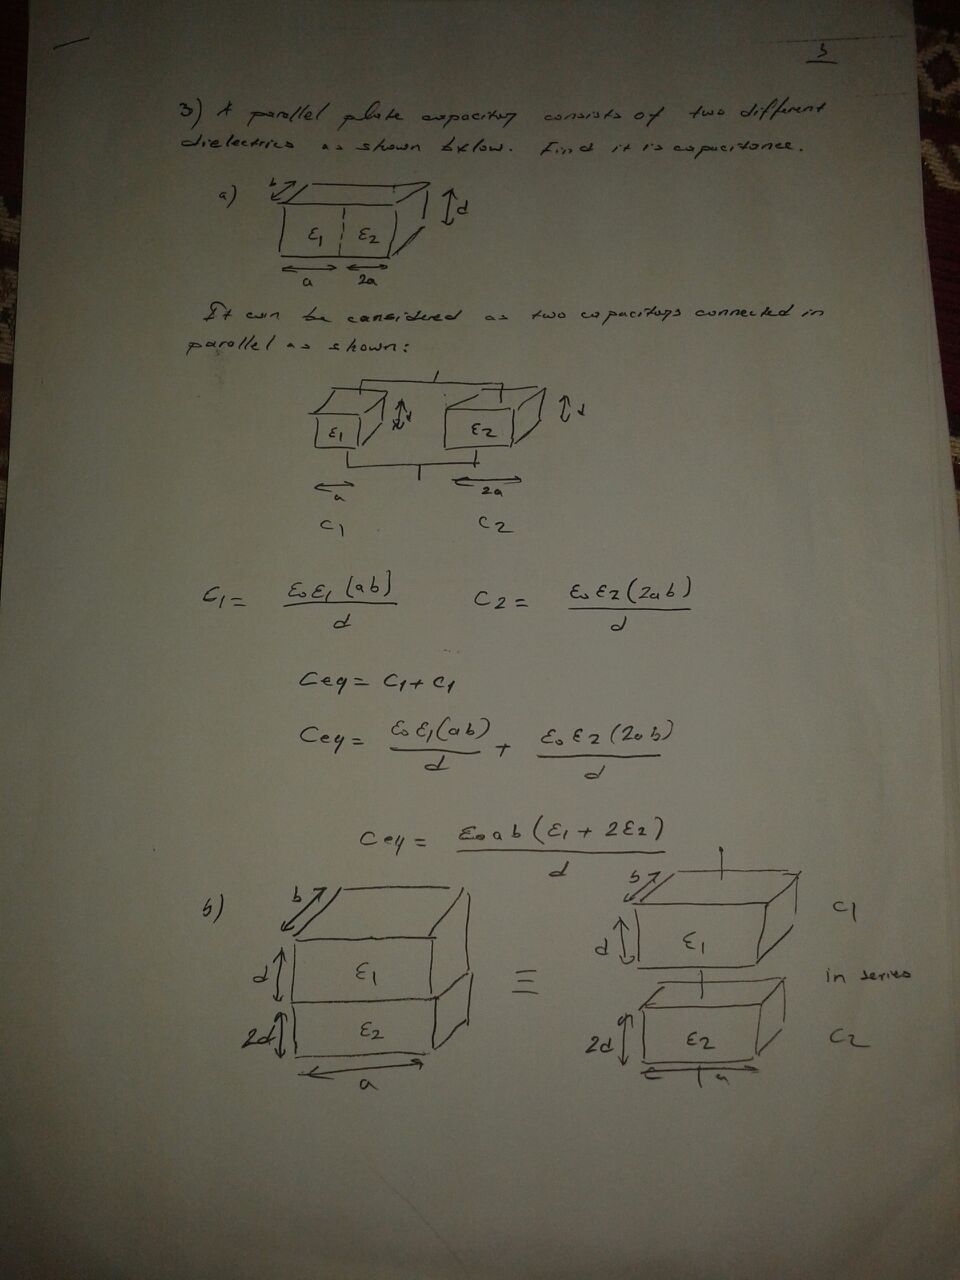 3
3) A parallel plate capacitor consists of two different
dielectrics as shown below. Find it is capacitance.
a)
b
d
ε1 ε2
a 2a
It can be considered as two capacitors connected in
parallel as shown:
ε1 d ε2 d
a 2a
C1 C2
C1 = ε0ε1(ab)/d C2 = ε0ε2(2ab)/d
Ceq = C1 + C1
Ceq = ε0ε1(ab)/d + ε0ε2(2ab)/d
Ceq = ε0ab(ε1 + 2ε2)/d
b)
b b
d ε1 ≡ d ε1 C1
in series
2d ε2 2d ε2 C2
a a